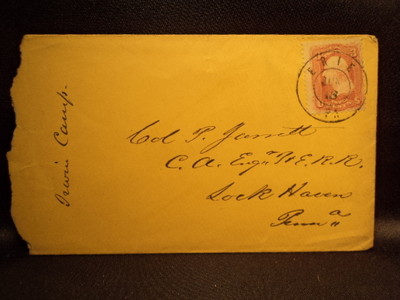 ERIE
Irwin Camp.
Col P. Jarrett
C. A. Engr P & E. R. R.
Lock Haven
Penna